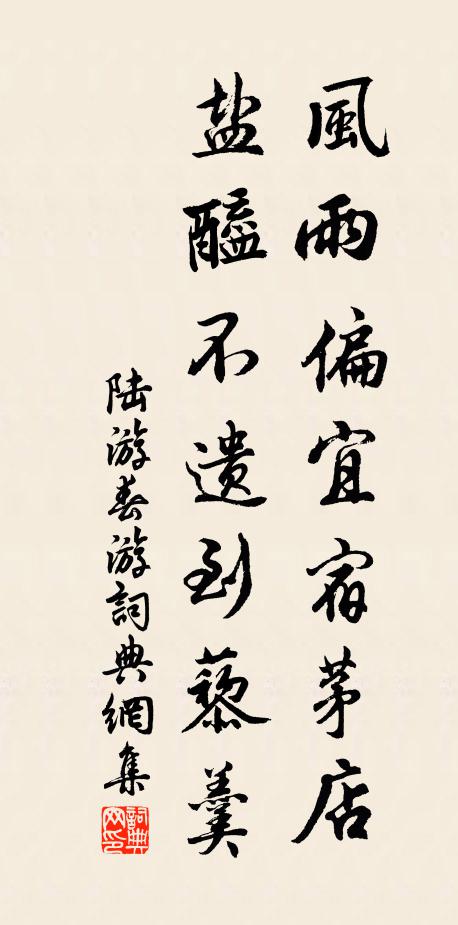 風雨偏宜宿茅店
盐醯不遣到藜羹
陆游春游詞典網集
詞典
网印